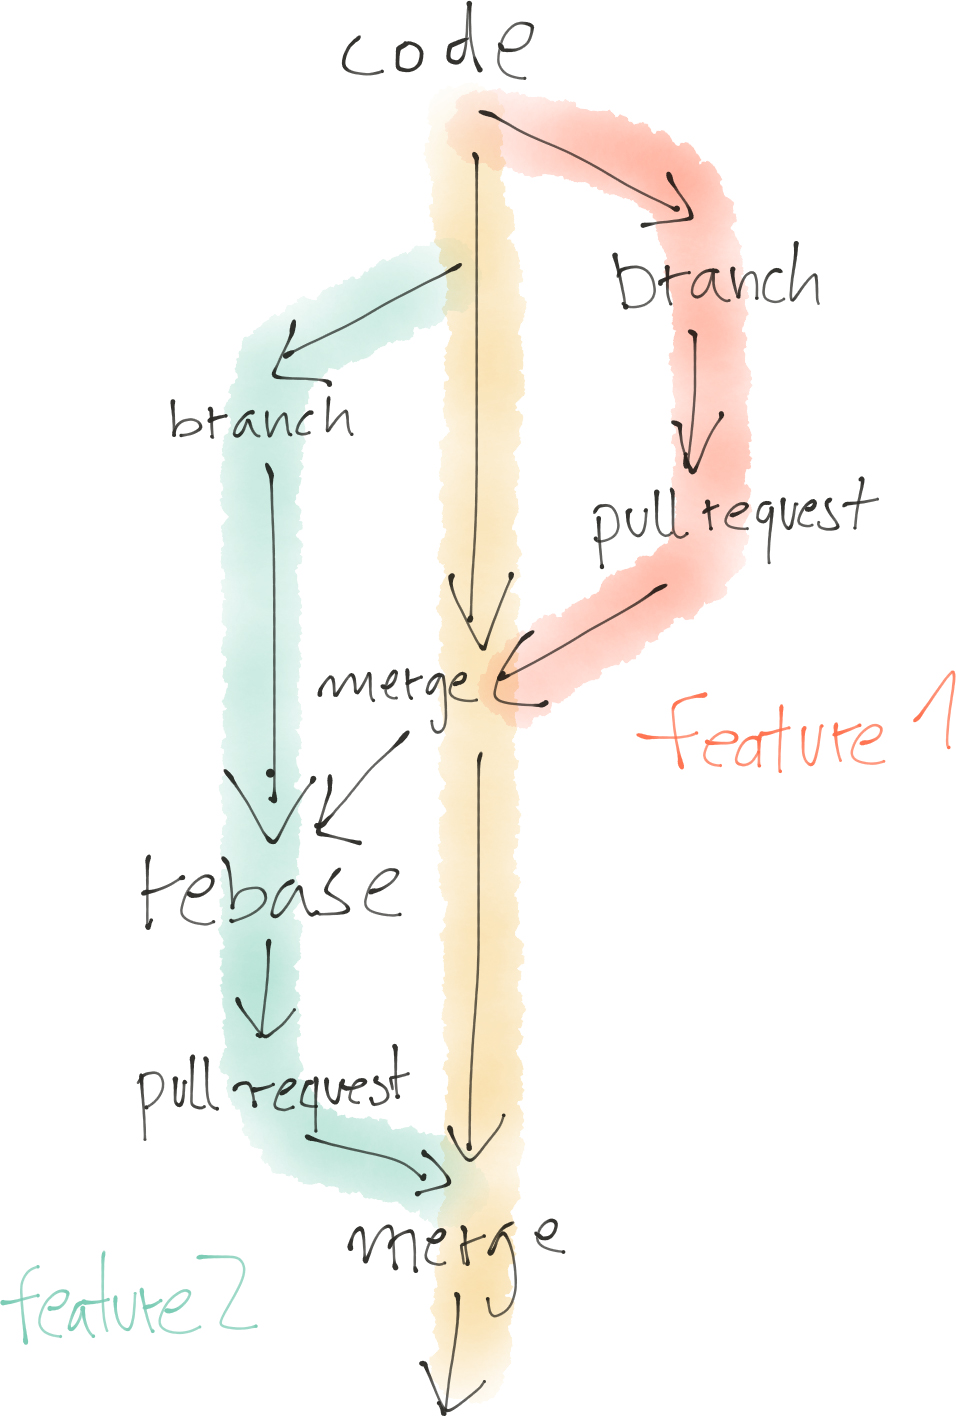 code
branch
branch
pull request
merge
feature 1
rebase
pull request
merge
feature 2